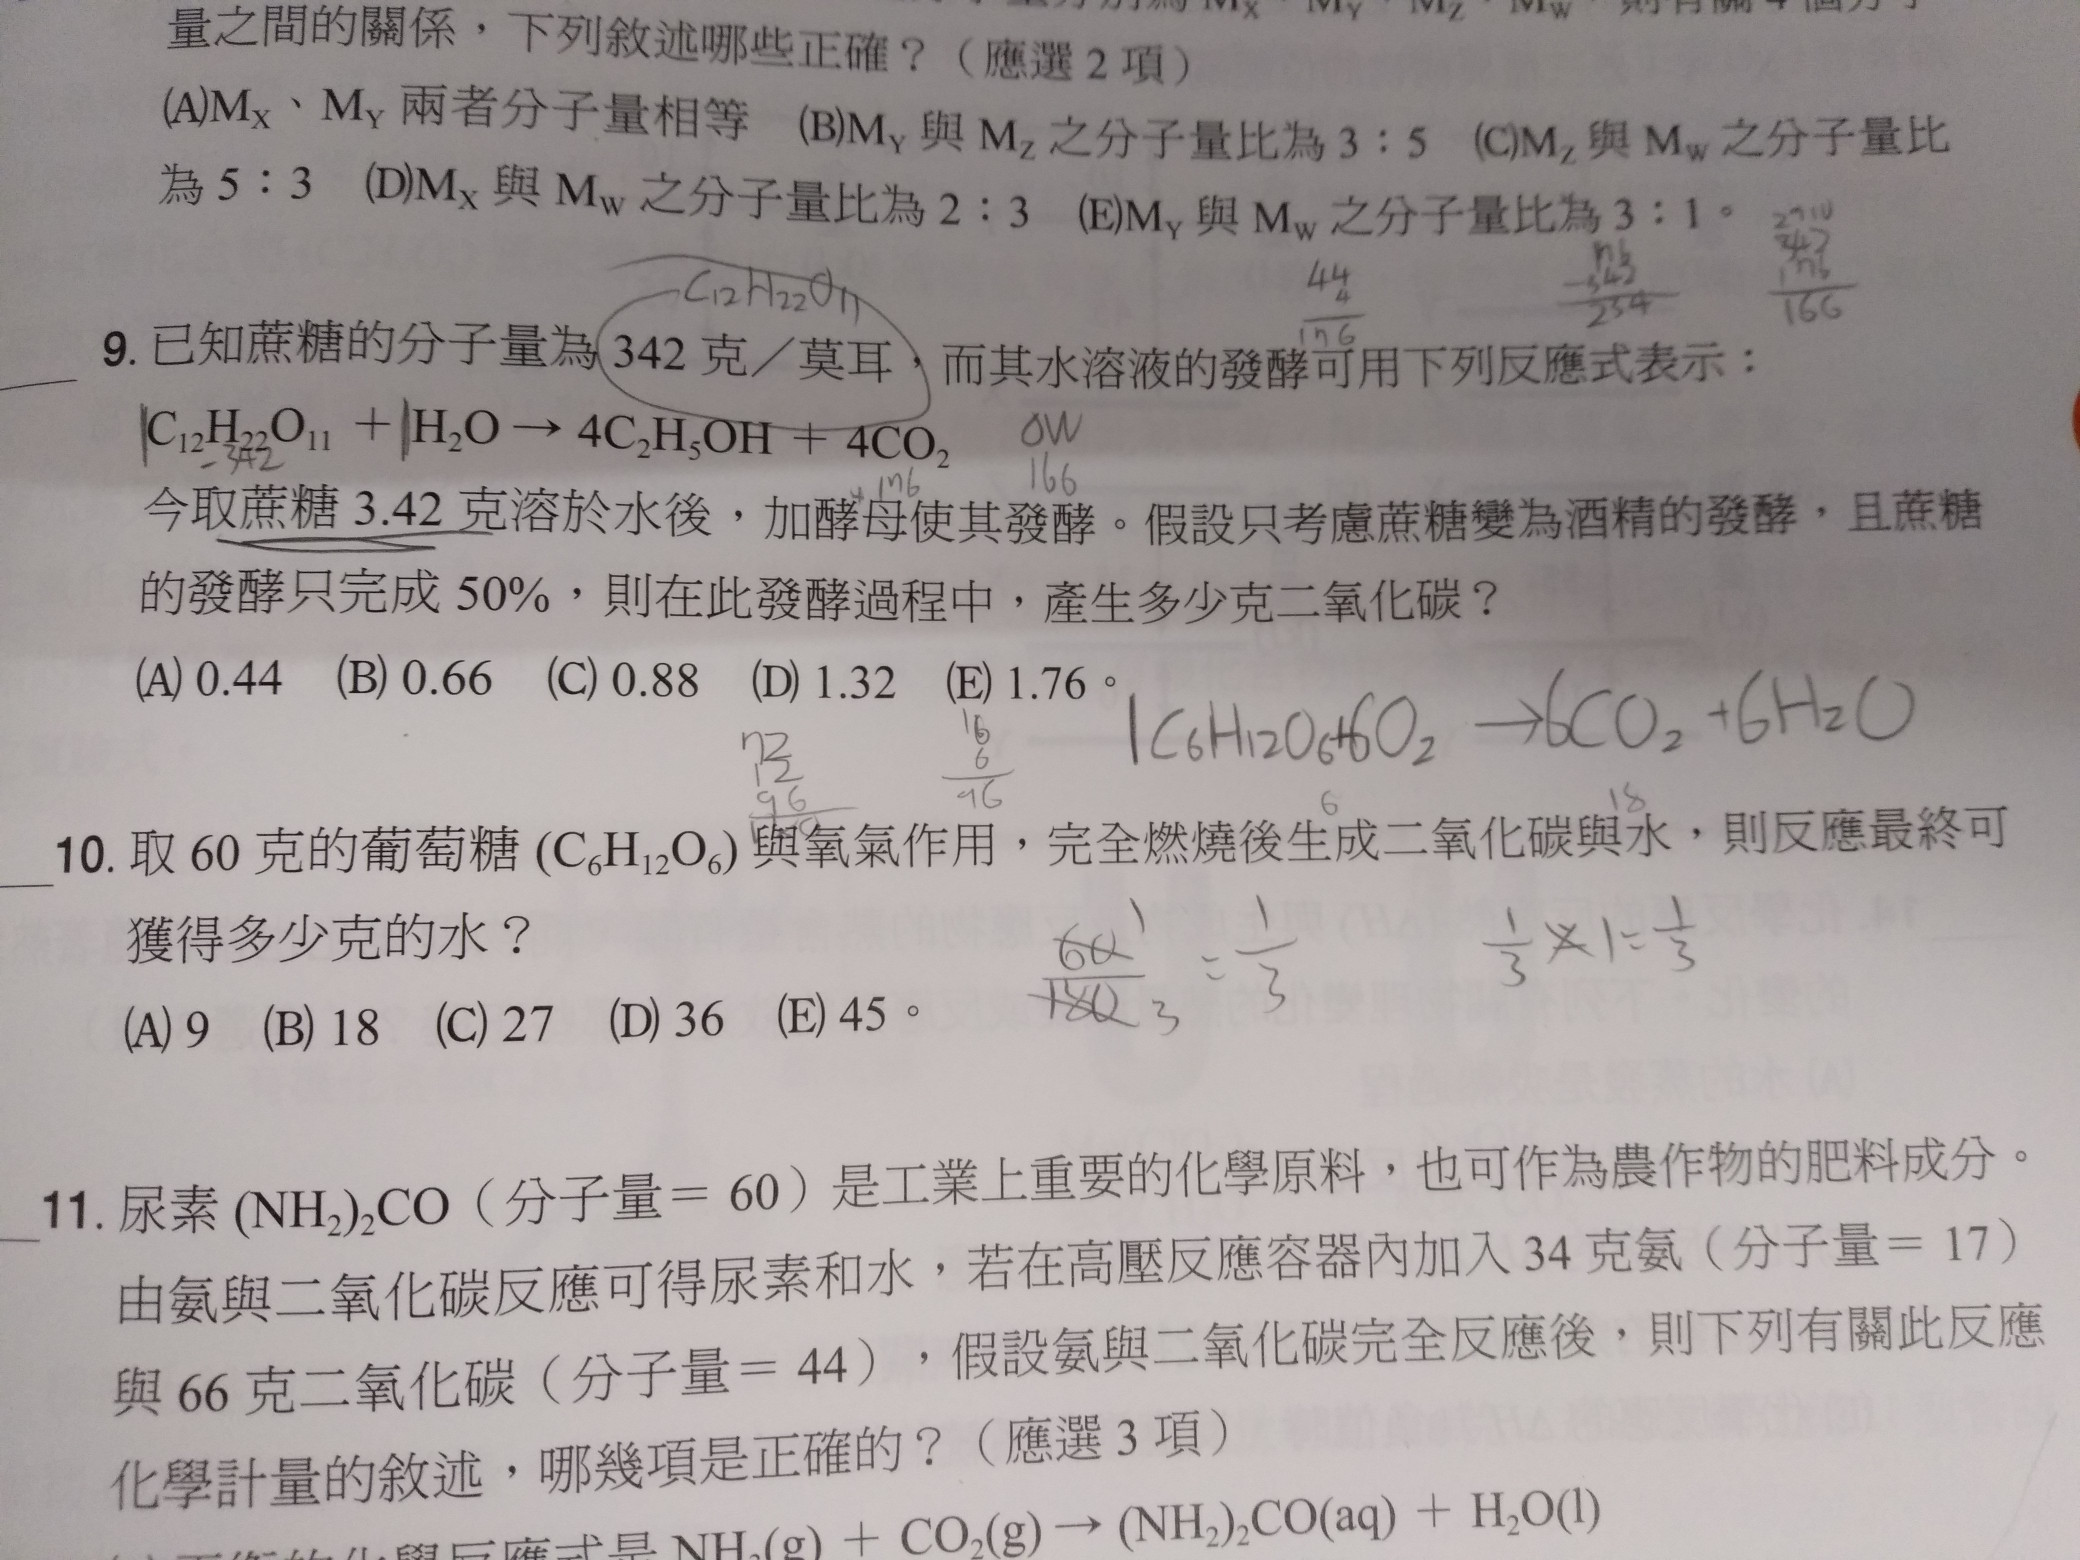 量之間的關係，下列敘述哪些正確？（應選2項）
(A)MX、MY 兩者分子量相等 (B)MY 與 MZ 之分子量比為 3：5 (C)MZ 與 MW 之分子量比
為 5：3 (D)MX 與 MW 之分子量比為 2：3 (E)MY 與 MW 之分子量比為 3：1。
C12H22O11
44
4
176
342
166
9. 已知蔗糖的分子量為 342 克／莫耳，而其水溶液的發酵可用下列反應式表示：
1C12H22O11 + 1H2O → 4C2H5OH + 4CO2
-342
176
166
今取蔗糖 3.42 克溶於水後，加酵母使其發酵。假設只考慮蔗糖變為酒精的發酵，且蔗糖
的發酵只完成 50%，則在此發酵過程中，產生多少克二氧化碳？
(A) 0.44 (B) 0.66 (C) 0.88 (D) 1.32 (E) 1.76。
1C6H12O6+6O2 →6CO2+6H2O
72
12
96
16
6
96
6
18
10. 取 60 克的葡萄糖 (C6H12O6) 與氧氣作用，完全燃燒後生成二氧化碳與水，則反應最終可
獲得多少克的水？
60/180 = 1/3
1/3 × 1 = 1/3
(A) 9 (B) 18 (C) 27 (D) 36 (E) 45。
11. 尿素 (NH2)2CO（分子量＝ 60）是工業上重要的化學原料，也可作為農作物的肥料成分。
由氨與二氧化碳反應可得尿素和水，若在高壓反應容器內加入 34 克氨（分子量＝ 17）
與 66 克二氧化碳（分子量＝ 44），假設氨與二氧化碳完全反應後，則下列有關此反應
化學計量的敘述，哪幾項是正確的？（應選 3 項）
的化學反應式是 NH3(g) + CO2(g) → (NH2)2CO(aq) + H2O(l)